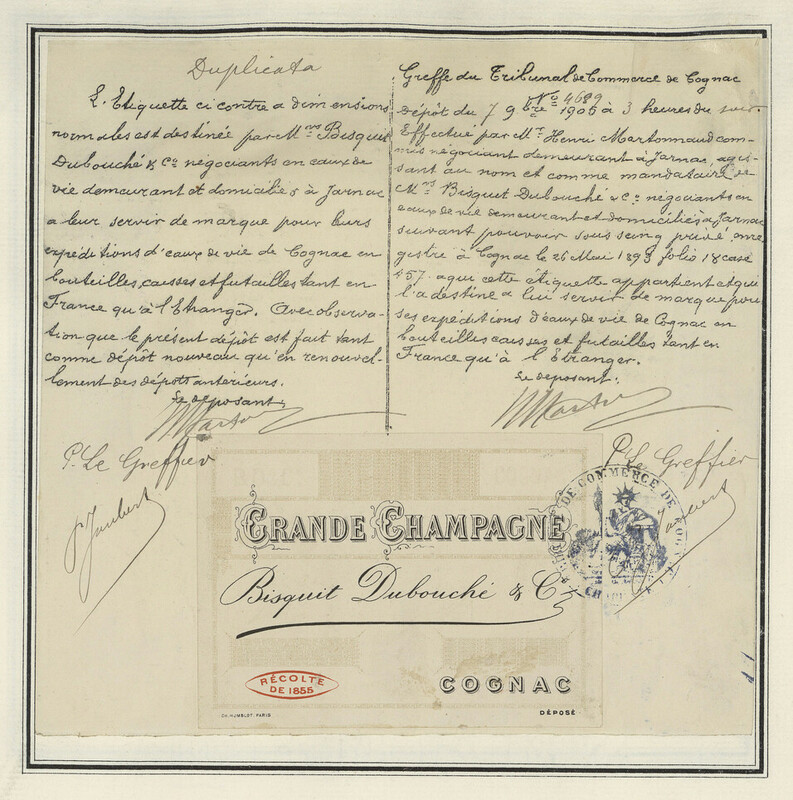 Duplicata
L'Etiquette ci contre a dimensions
normales est destinée par Mrs Bisquit
Dubouché & Co négociants en eaux de
vie demeurant et domiciliés à Jarnac
a leur servir de marque pour leurs
expéditions d'eaux de vie de Cognac en
bouteilles, caisses et futailles tant en
France qu'à l'Etranger. Avec observa-
tion que le présent dépôt est fait tant
comme dépôt nouveau qu'en renouvel-
lement des dépôts antérieurs.
Le déposant,
P. Le Greffier
Greffe du Tribunal de Commerce de Cognac
No 4689
Dépôt du 7 9bre 1905 à 3 heures du soir.
Effectué par Mr Henri Martonnaud com-
mis négociant demeurant à Jarnac, agis-
sant au nom et comme mandataire de
Mrs Bisquit Dubouché & Co négociants en
eaux de vie demeurant et domiciliés à Jarnac
suivant pouvoir sous seing privé enre
gistré à Cognac le 26 Mai 1893 folio 18 case
457. a qui cette étiquette appartient et qui
l'a destine a lui servir de marque pour
ses expéditions d'eaux de vie de Cognac en
bouteilles caisses et futailles tant en
France qu'à l'Étranger.
Le déposant,
P. Le Greffier
DE COMMERCE DE
GRANDE CHAMPAGNE
Bisquit Dubouché & Co
RÉCOLTE
DE 1855
COGNAC
CH. HUMBLOT. PARIS
DÉPOSÉ